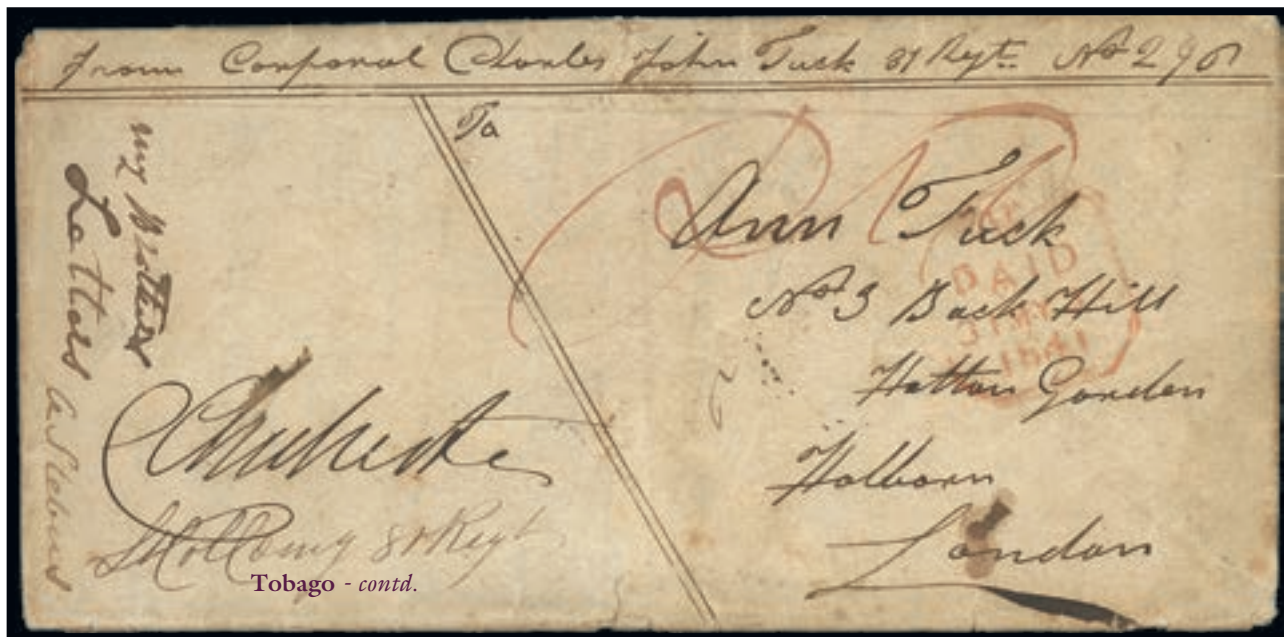 From Corporal Charles John Tuck 81 Regt. No 2901
To
Ann Tuck
No 3 Back Hill
Hatton Garden
Holborn
London
PAID
1841
my Brothers
Letters
81 Regt
Tobago - contd.